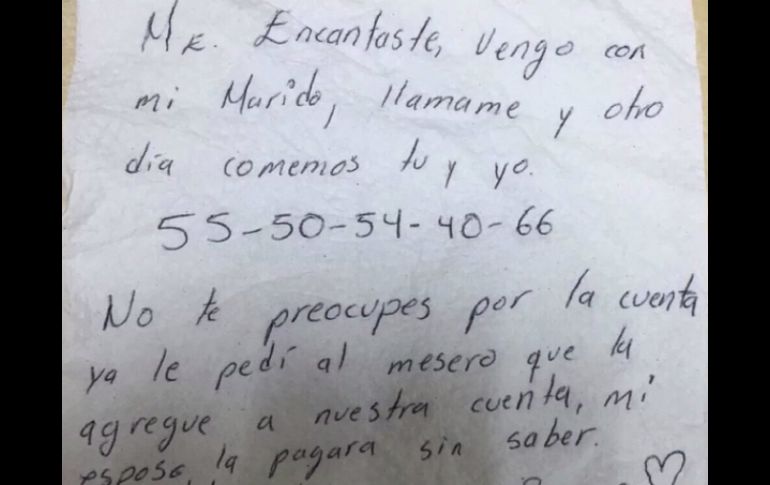 Me. Encantaste, Vengo con
mi Marido, llamame y otro
día comemos tu y yo.
55-50-54-40-66
No te preocupes por la cuenta
ya le pedí al mesero que la
agregue a nuestra cuenta, mi
esposo la pagara sin saber.